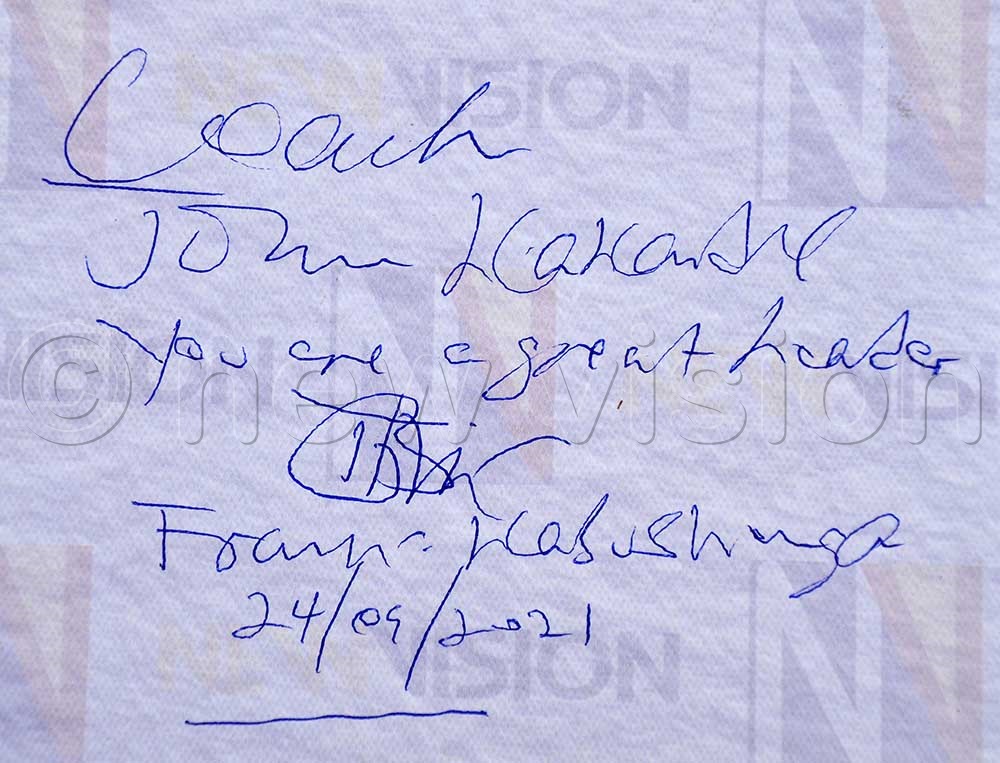 Coach
John Kakande
You are a great leader
Frank Kabushenga
24/09/2021
NEW VISION
© new vision
NEW VISION